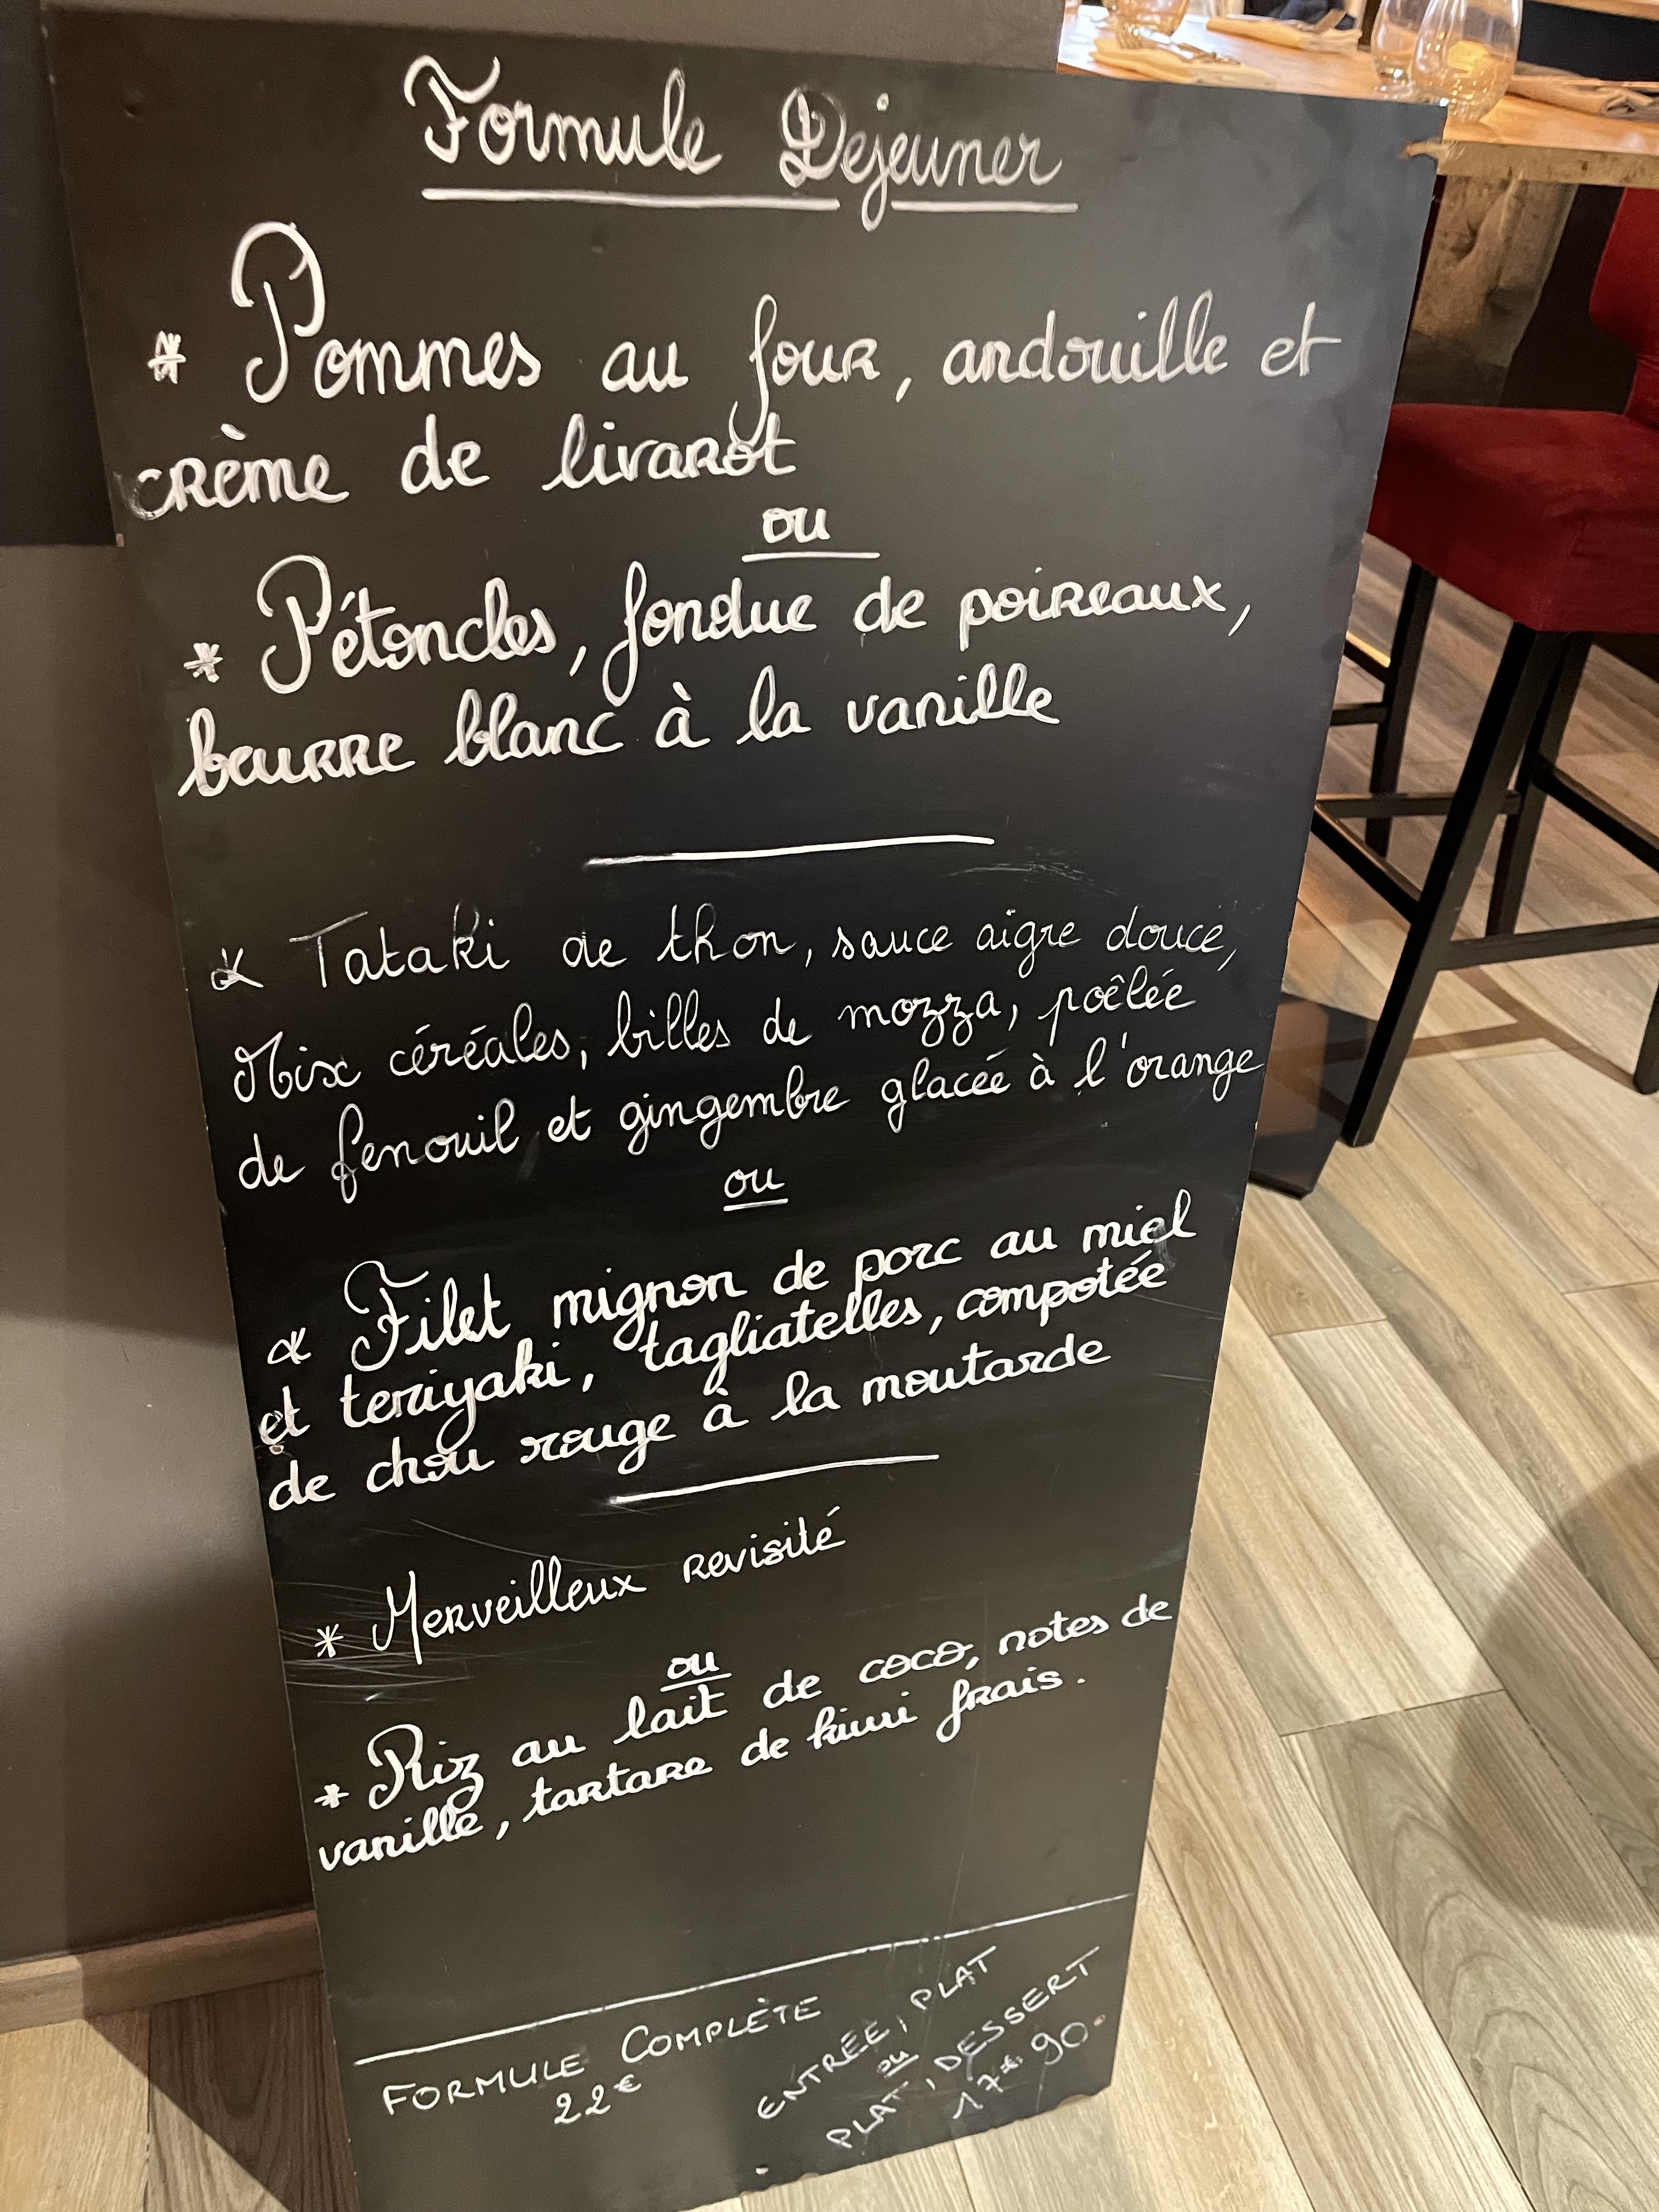 Formule Dejeuner
* Pommes au four, andouille et
crème de livarot
ou
* Pétoncles, fondue de poireaux,
beurre blanc à la vanille
* Tataki de thon, sauce aigre douce,
Mix céréales, billes de mozza, poêlée
de fenouil et gingembre glacée à l'orange
ou
* Filet mignon de porc au miel
et teriyaki, tagliatelles, compotée
de chou rouge à la moutarde
* Merveilleux revisité
ou
* Riz au lait de coco, notes de
vanille, tartare de kiwi frais.
FORMULE COMPLÈTE
22€
ENTRÉE, PLAT
ou
PLAT, DESSERT
17€90